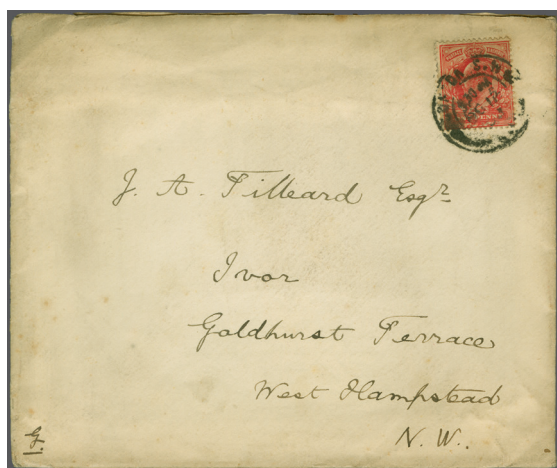 J. A. Tilleard Esqr
Ivor
Goldhurst Terrace
West Hampstead
N. W.
G.